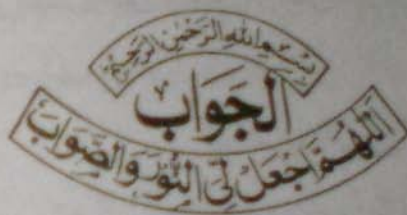 بسم الله الرحمن الرحيم
الجَوَابُ
اَللّٰهُمَّ اجْعَلْ لِیَ النُّوْرَ وَالصَّوَابَ